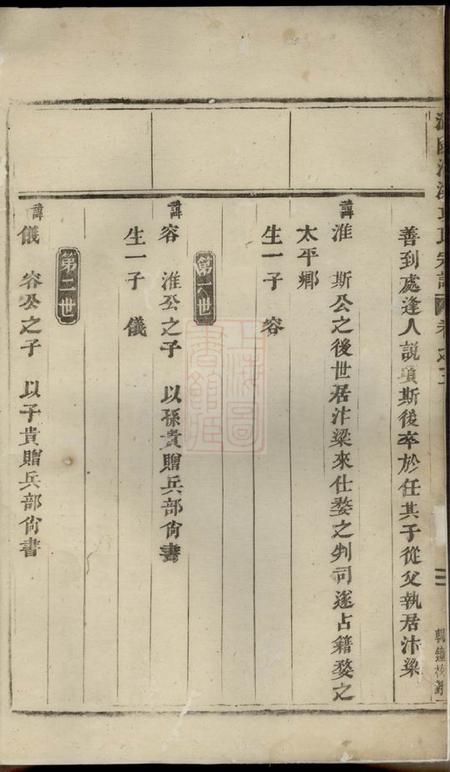 善到處逢人說項斯後卒於任其子從父執居汴梁
諱淮 斯公之後世居汴梁來仕婺之判司遂占籍婺之
太平鄉
生一子 容
第一世
諱容 淮公之子 以孫貴贈兵部尙書
生一子 儀
第二世
諱儀 容公之子 以子貴贈兵部尙書
上海圖書館藏